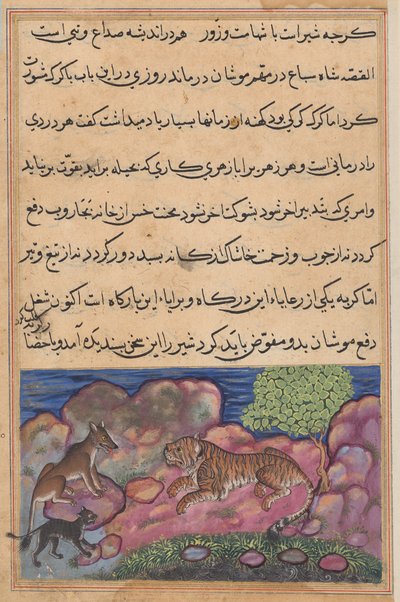 کرچه شیرات با شهامت و زور هم در اندیشه صداع وتبی است
القصه شاه سباع در مهم موشان درماند روزی در این باب با کرک مشورت
کرد اما کرک کرکی بود کهنه از زمانها بسیار یاد میداشت کفت هر دردی
را درمانی است و هر زهر را پازهری کاری که بحیله براید بقوت برنیاید
وامری که بتدبیر اخر شود بشوکت اخر نشود محنت خس از خانه بجاروب دفع
کردد نه از چوب و زحمت خاشاک از کاه بسبد دور کردد نه از تیغ و تیر
اما کربه یکی از رعایاء این درکاه و برایاء این بارکاه است اکنون شغل
دفع موشان بدو مفوض باید کرد شیر را این سخن پسندیده آمد و باحضا